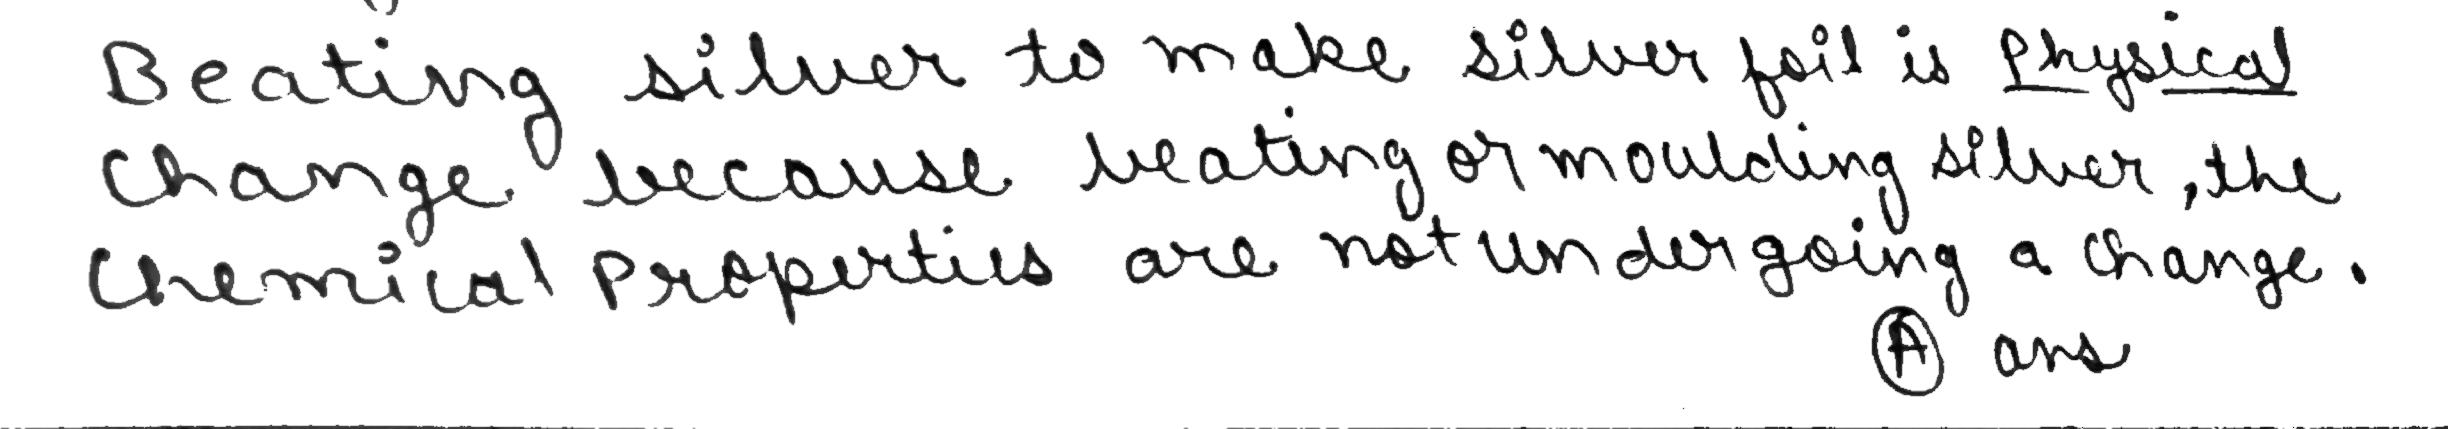 Beating silver to make silver foil is Physical
change. because beating or moulding silver, the
Chemical Properties are not undergoing a change.
A ans